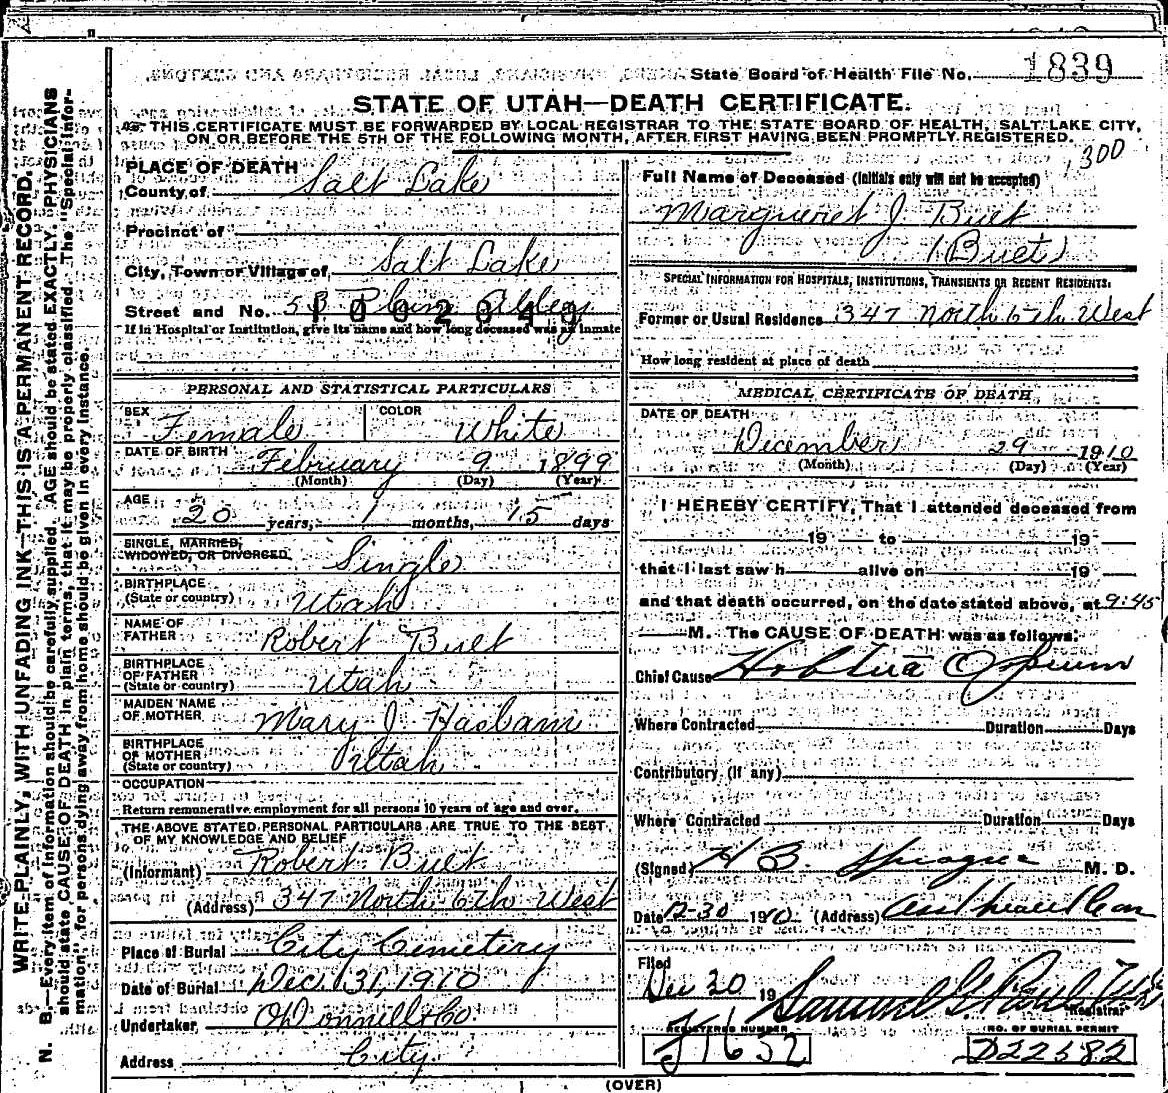 State Board of Health File No. 1839
STATE OF UTAH—DEATH CERTIFICATE.
THIS CERTIFICATE MUST BE FORWARDED BY LOCAL REGISTRAR TO THE STATE BOARD OF HEALTH, SALT LAKE CITY,
ON OR BEFORE THE 5TH OF THE FOLLOWING MONTH, AFTER FIRST HAVING BEEN PROMPTLY REGISTERED.
300
WRITE PLAINLY, WITH UNFADING INK—THIS IS A PERMANENT RECORD.
N. B.—Every item of information should be carefully supplied. AGE should be stated EXACTLY. PHYSICIANS
should state CAUSE OF DEATH in plain terms, that it may be properly classified. The "Special Infor-
mation" for persons dying away from home should be given in every instance.
PLACE OF DEATH
County of Salt Lake
Precinct of
City, Town or Village of Salt Lake
Street and No. Plum Alley
1092343
If in Hospital or Institution, give its name and how long deceased was an inmate
PERSONAL AND STATISTICAL PARTICULARS
SEX Female COLOR White
DATE OF BIRTH February 9 1899
(Month) (Day) (Year)
AGE
20 years, months, 15 days
SINGLE, MARRIED,
WIDOWED, OR DIVORCED Single
BIRTHPLACE
(State or country) Utah
NAME OF
FATHER Robert Buet
BIRTHPLACE
OF FATHER
(State or country) Utah
MAIDEN NAME
OF MOTHER Mary J Haslam
BIRTHPLACE
OF MOTHER
(State or country) Utah
OCCUPATION
Return remunerative employment for all persons 10 years of age and over.
THE ABOVE STATED PERSONAL PARTICULARS ARE TRUE TO THE BEST
OF MY KNOWLEDGE AND BELIEF
(Informant) Robert Buet
(Address) 347 North 6th West
Place of Burial City Cemetery
Date of Burial Dec. 31, 1910
Undertaker O'Donnell & Co.
Address City
Full Name of Deceased (Initials only will not be accepted)
Margueret J Buet
(Buet)
SPECIAL INFORMATION FOR HOSPITALS, INSTITUTIONS, TRANSIENTS OR RECENT RESIDENTS.
Former or Usual Residence 347 North 6th West
How long resident at place of death
MEDICAL CERTIFICATE OF DEATH
DATE OF DEATH
December 29 1910
(Month) (Day) (Year)
I HEREBY CERTIFY, That I attended deceased from
19 to 19
that I last saw h alive on 19
and that death occurred, on the date stated above, at 9:45
M. The CAUSE OF DEATH was as follows:
Chief Cause Opium
Where Contracted Duration Days
Contributory (if any)
Where Contracted Duration Days
(Signed) H B. Sprague M. D.
Date 12-30 1910 (Address)
Filed
Dec 30 19 Samuel G. Paul
Registrar
REGISTERED NUMBER NO. OF BURIAL PERMIT
J1652 D22582
(OVER)